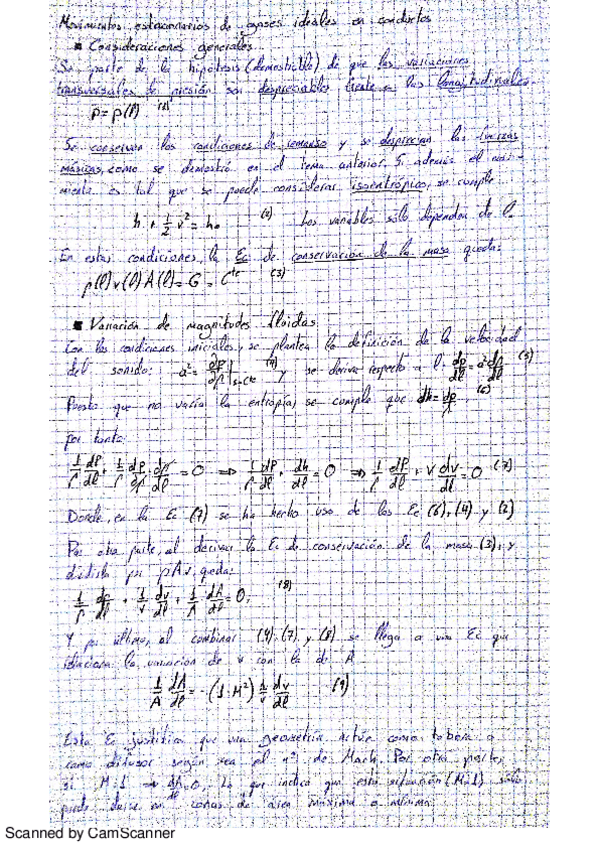 Movimientos estacionarios de gases ideales en conductos
■ Consideraciones generales
Se parte de la hipótesis (demostrable) de que las variaciones
transversales de presión son despreciables frente a las longitudinales.
p = p(l) (1)
Se conservan las condiciones de remanso y se desprecian las fuerzas
másicas, como se demostró en el tema anterior. Si además el movi-
miento es tal que se puede considerar isentrópico, se cumple
h + 1/2 v² = h₀ (2) Las variables sólo dependen de l.
En estas condiciones, la Ec de conservación de la masa queda:
ρ(l)v(l)A(l) = G = Cte (3)
■ Variación de magnitudes fluidas
Con las condiciones iniciales, se plantea la definición de la velocidad
del sonido: a² = ∂p/∂ρ|s=cte (4) y se deriva respecto a l: dp/dl = a² dρ/dl (5)
Puesto que no varía la entropía, se cumple que dh = dp/ρ (6)
por tanto:
⇒ 1/ρ dp/dl + v dv/dl = 0 (7)
Donde, en la Ec (7) se ha hecho uso de las Ec (6), (4) y (2)
Por otra parte, al derivar la Ec de conservación de la masa (3), y
dividirla por ρAv, queda:
1/ρ dρ/dl + 1/v dv/dl + 1/A dA/dl = 0; (8)
Y por último, al combinar (4), (7) y (8) se llega a una Ec que
relaciona la variación de v con la de A
1/A dA/dl = -(1-M²) 1/v dv/dl (9)
Esta Ec justifica que una geometría actúe como tobera o
como difusor según sea el nº de Mach. Por otra parte,
si M=1 ⇒ dA/dl = 0. Lo que indica que esta situación (M=1) sólo
puede darse en zonas de área máxima o mínima.
Scanned by CamScanner